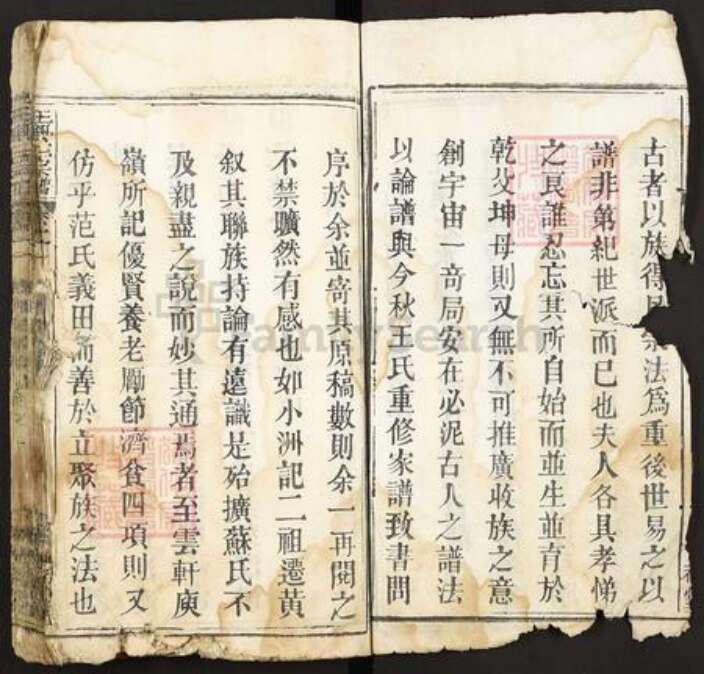 古者以族得民宗法爲重後世易之以
譜非第紀世派而已也夫人各具孝悌
之良誰忍忘其所自始而並生並育於
乾父坤母則又無不可推廣收族之意
創宇宙一奇局安在必泥古人之譜法
以論譜與今秋王氏重修家譜致書問
序於余並寄其原稿數則余一再閱之
不禁曠然有感也如小洲記二祖遷黃
叙其聯族持論有遠識是殆擴蘇氏不
及親盡之說而妙其通焉者至雲軒庾
嶺所記優賢養老勵節濟貧四項則又
仿乎范氏義田而善於立聚族之法也
FamilySearch